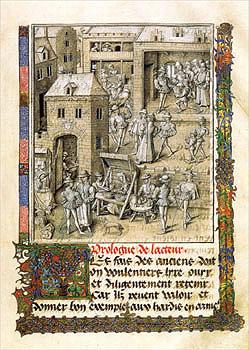 Prologue de lacteur
Les fais des anciens doit
on voulentiers lire ouir
et diligentement retenir
Car ilz peuent valoir et
donner bon exemple aux hardis en arme